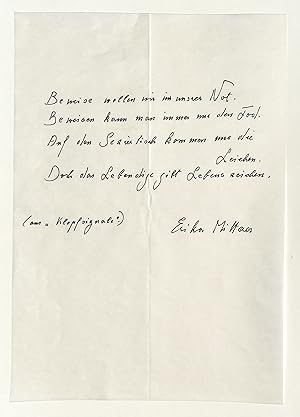 Beweise wollen wir in unsrer Not.
Beweisen kann man immer nur den Tod.
Auf den Seziertisch kommen nur die
Leichen.
Doch das Lebendige gibt Lebenszeichen.
(aus „Klopfsignale")
Erika Mitterer